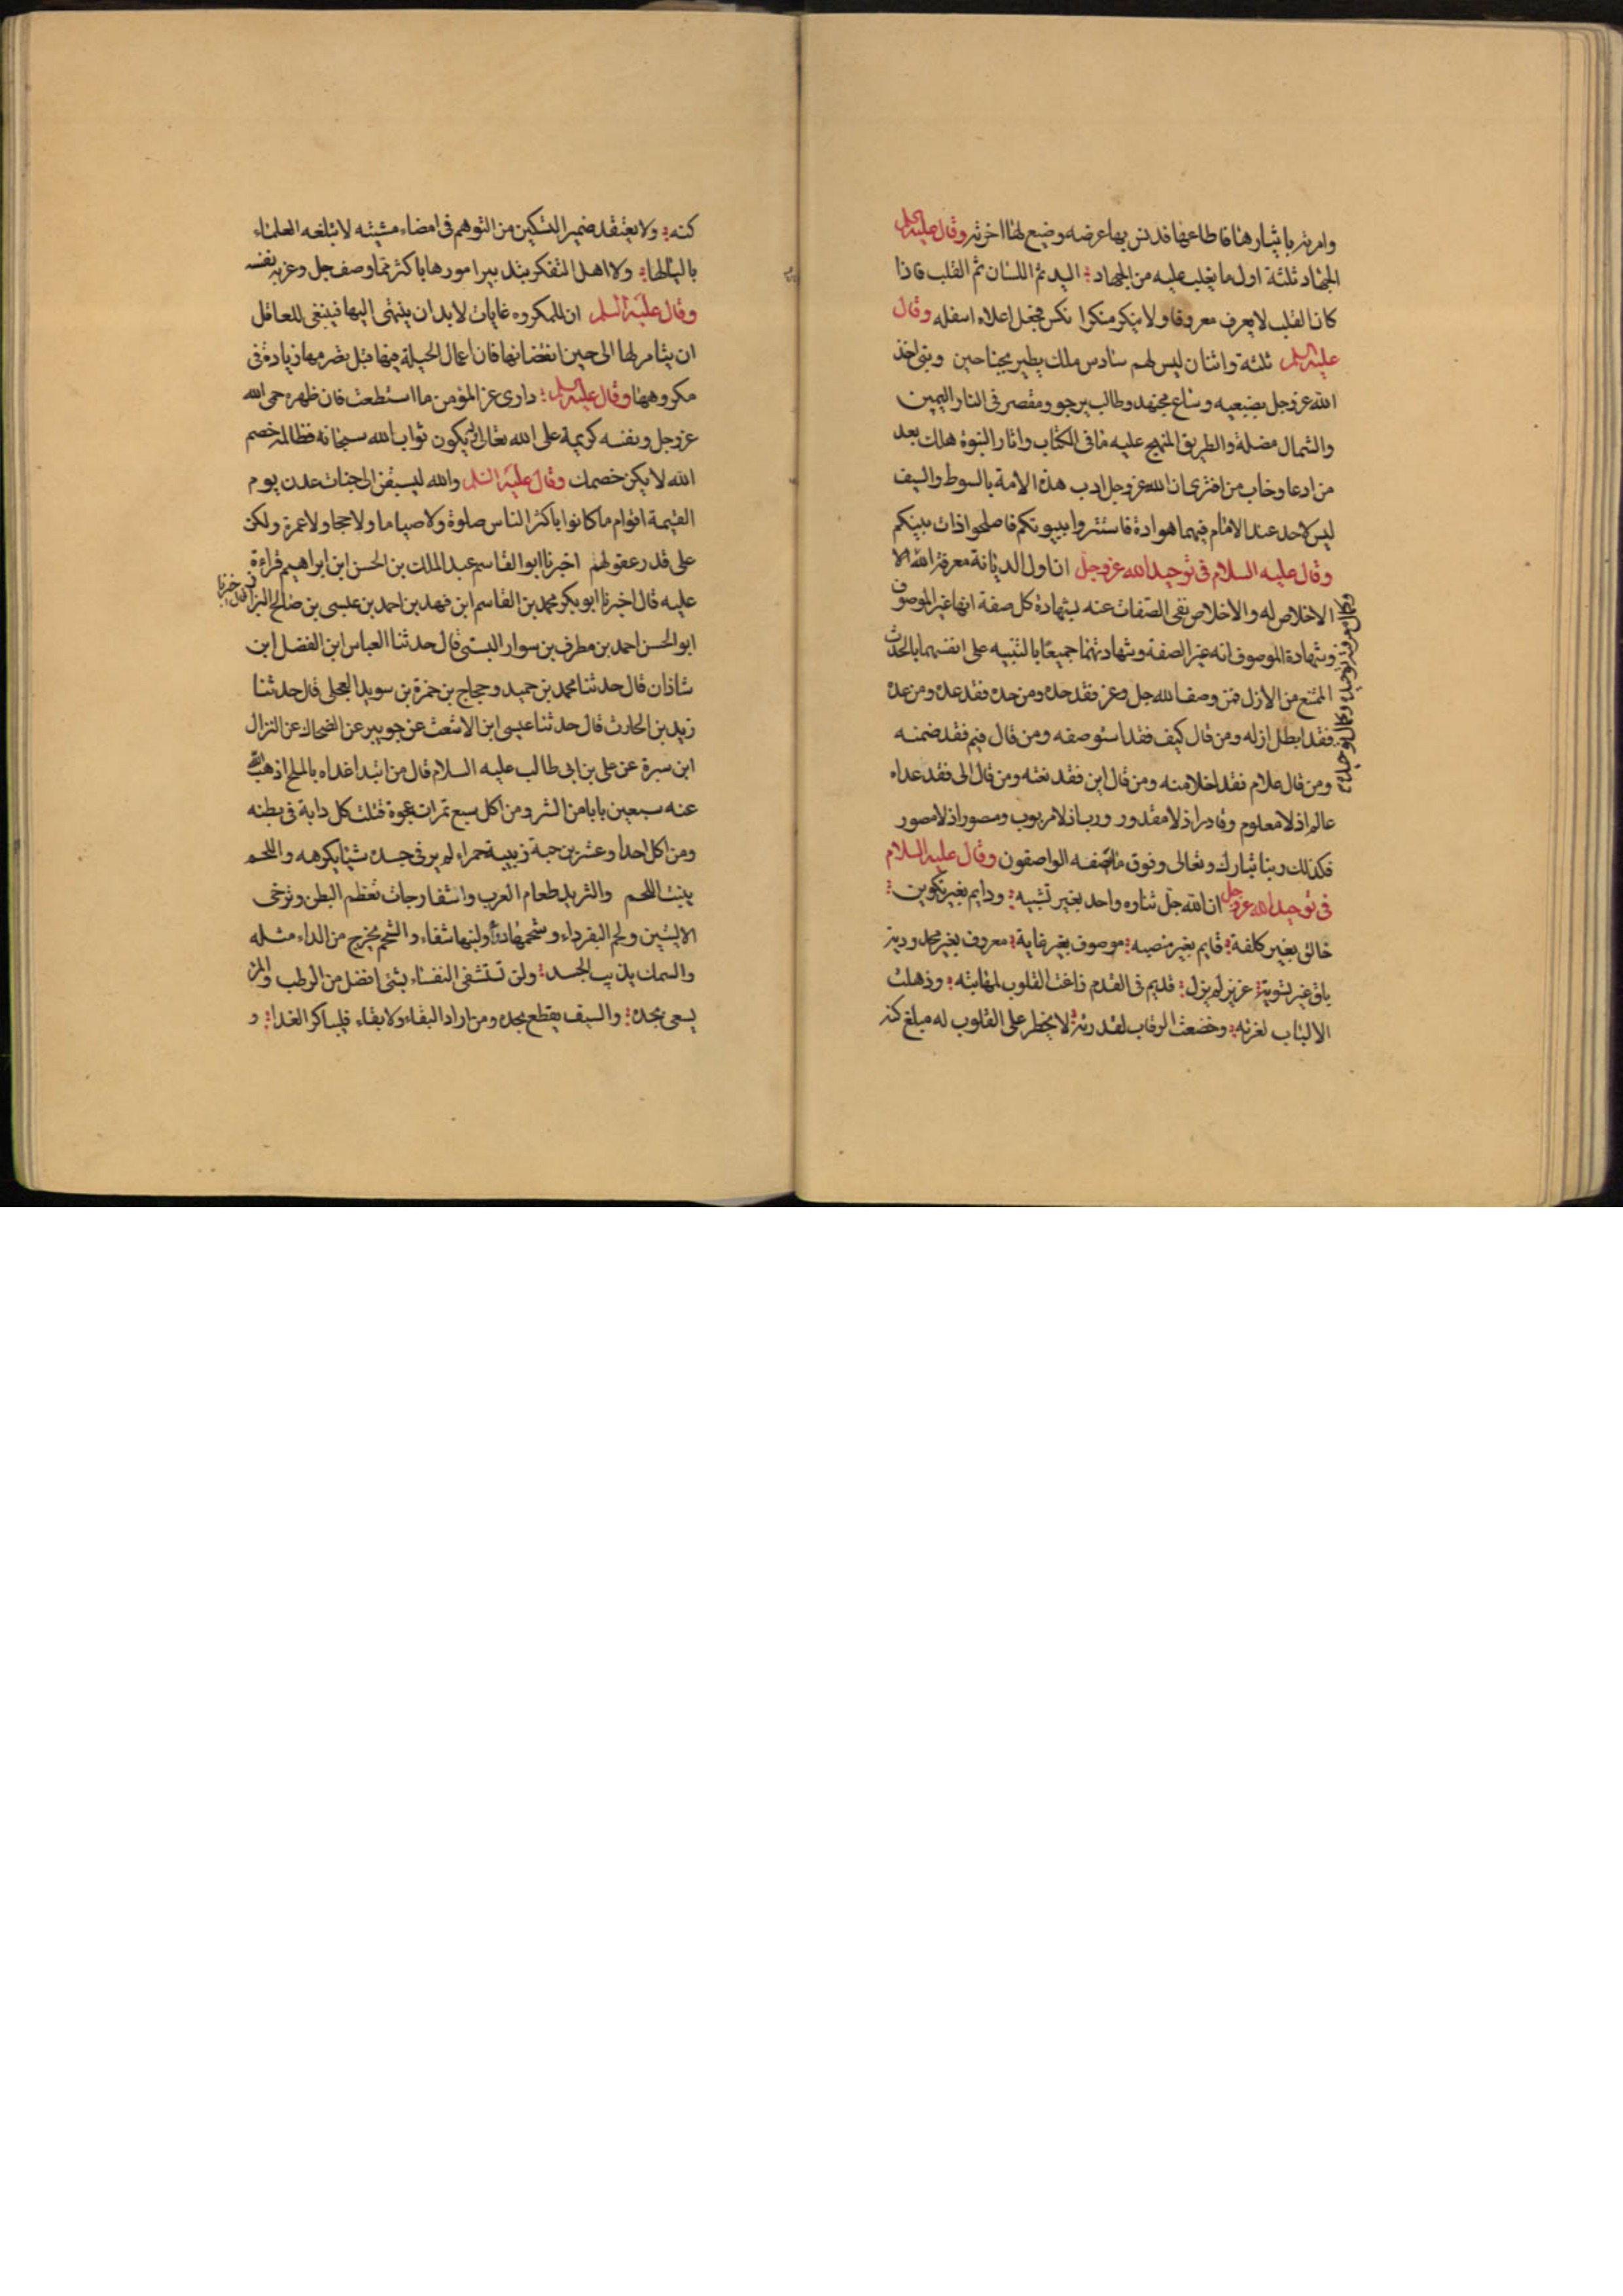 وامرته بايثارهنا فاطاعها فدنس بها عرضه وضيع لهنا اخرته وقال عليه السلم
الجهاد ثلثة اول ما يغلب عليه من الجهاد اليد ثم اللسان ثم القلب فاذا
كان القلب لا يعرف معروفا ولا ينكر منكرا نكس فجعل اعلاه اسفله وقال
عليه السلم ثلثة واثنان ليس لهم سادس ملك يطير بجناحين ونبى اخذ
الله عز وجل بضبعيه وساع مجتهد وطالب يرجو ومقصر فى النار اليمين
والشمال مضلة والطريق المنهج عليه مافى الكتاب واثار النبوة هلك بعد
من ادعا وخاب من افترى ان الله عز وجل ادب هذه الامة بالسوط والسيف
ليس لاحد عند الامام فيهما هوادة فاستتروا ببيوتكم فاصلحوا ذات بينكم
وقال عليه السلام فى توحيد الله عز وجل ان اول الديانة معرفة الله الا
الاخلاص له والاخلاص نفى الصفات عنه لشهادة كل صفة انها غير الموصوف
وشهادة الموصوف انه غير الصفة وشهادتهما جميعا بالتنبيه على انفسهما بالحدث
الممتنع من الازل فمن وصف الله جل وعز فقد حده ومن حده فقد عده ومن عده
فقد ابطل ازله ومن قال كيف فقد استوصفه ومن قال فيم فقد ضمنه
ومن قال علام فقد اخلا منه ومن قال اين فقد نعته ومن قال الى فقد عداه
عالم اذ لا معلوم وقادر اذ لا مقدور ورب اذ لا مربوب ومصور اذ لا مصور
فكذلك ربنا تبارك وتعالى وفوق ما تصفه الواصفون وقال عليه السلام
فى توحيد الله عز وجل ان الله جل ثناوه واحد بغير تشبيه ودايم بغير تكوين
خالق بغير كلفة قايم بغير منصبه موصوف بغير غاية معروف بغير محدودية
باق غير تسوية عزيز لم يزل قديم فى القدم زاغت القلوب لمهابته وذهلت
الالباب لعزته وخضعت الرقاب لقدرته لا يخطر على القلوب له مبلغ كنه
كنه ولا يعتقد ضمير التسكين من التوهم فى امضاء مشيته لا تبلغه العلماء
بالبالها ولا اهل التفكر بتدبير امورها باكثر مما وصف جل وعز به نفسه
وقال عليه السلم ان للمكروه غايات لا بد ان ينتهى اليها فينبغى للعاقل
ان ينام لها الى حين انقضانها فان اعمال الحيلة فيها قبل تصرمها زيادة فى
مكروهها وقال عليه السلم دارى عن المؤمن ما استطعت فان ظهره حمى الله
عز وجل ونفسه كريمة على الله تعالى يكون ثواب الله سبحانه فظالمه خصم
الله لا يكن خصمك وقال عليه السلم والله ليسبقن الى جنات عدن يوم
القيمة اقوام ما كانوا باكثر الناس صلوة ولا صياما ولا حجا ولا عمرة ولكن
على قدر عقولهم اخبرنا ابو القاسم عبد الملك بن الحسن ابن ابراهيم قراءة
عليه قال اخبرنا ابو بكر محمد بن القاسم ابن فهد بن احمد بن عيسى بن صالح البزاز قال اخبرنا
ابو الحسن احمد بن مطرف بن سوار البستى قال حدثنا العباس ابن الفضل ابن
شاذان قال حدثنا محمد بن حميد وحجاج بن حمزة بن سويد العجلى قال حدثنا
زيد بن الحارث قال حدثنا عيسى ابن الاشعث عن جويبر عن الضحاك عن النزال
ابن سبرة عن على بن ابى طالب عليه السلام قال من ابتدا غداه بالملح اذهب الله
عنه سبعين بابا من الشر ومن اكل سبع تمرات عجوة قتلت كل دابة فى بطنه
ومن اكل احدا وعشرين حبة زبيبة حمراء لم ير فى جسده شيئا يكرهه واللحم
ينبت اللحم والثريد طعام العرب واشفارجات تعظم البطن وترخى
الاليتين ولحم البقر داء وشحمها دواء ولبنها شفاء والشحم يخرج من الداء مثله
والسمك يذيب الجسد ولن تستشفى النفساء بشى افضل من الرطب والمرء
يسعى بجده والسيف يقطع بحده ومن اراد البقاء ولا بقاء فليباكر الغدا و